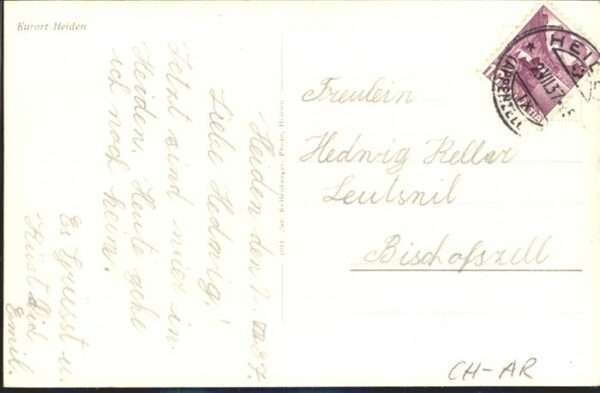 Kurort Heiden
Heiden den 2. VII 37.
Liebe Hedwig!
Jetzt sind wir in
Heiden. Heute gehe
ich noch heim.
Es Grüsst u.
Küsst Did
Emil.
Freulein
Hedwig Keller
Leutswil
Bischofszell
HEIDEN
2.VII.37
(APPENZELL
CH-AR